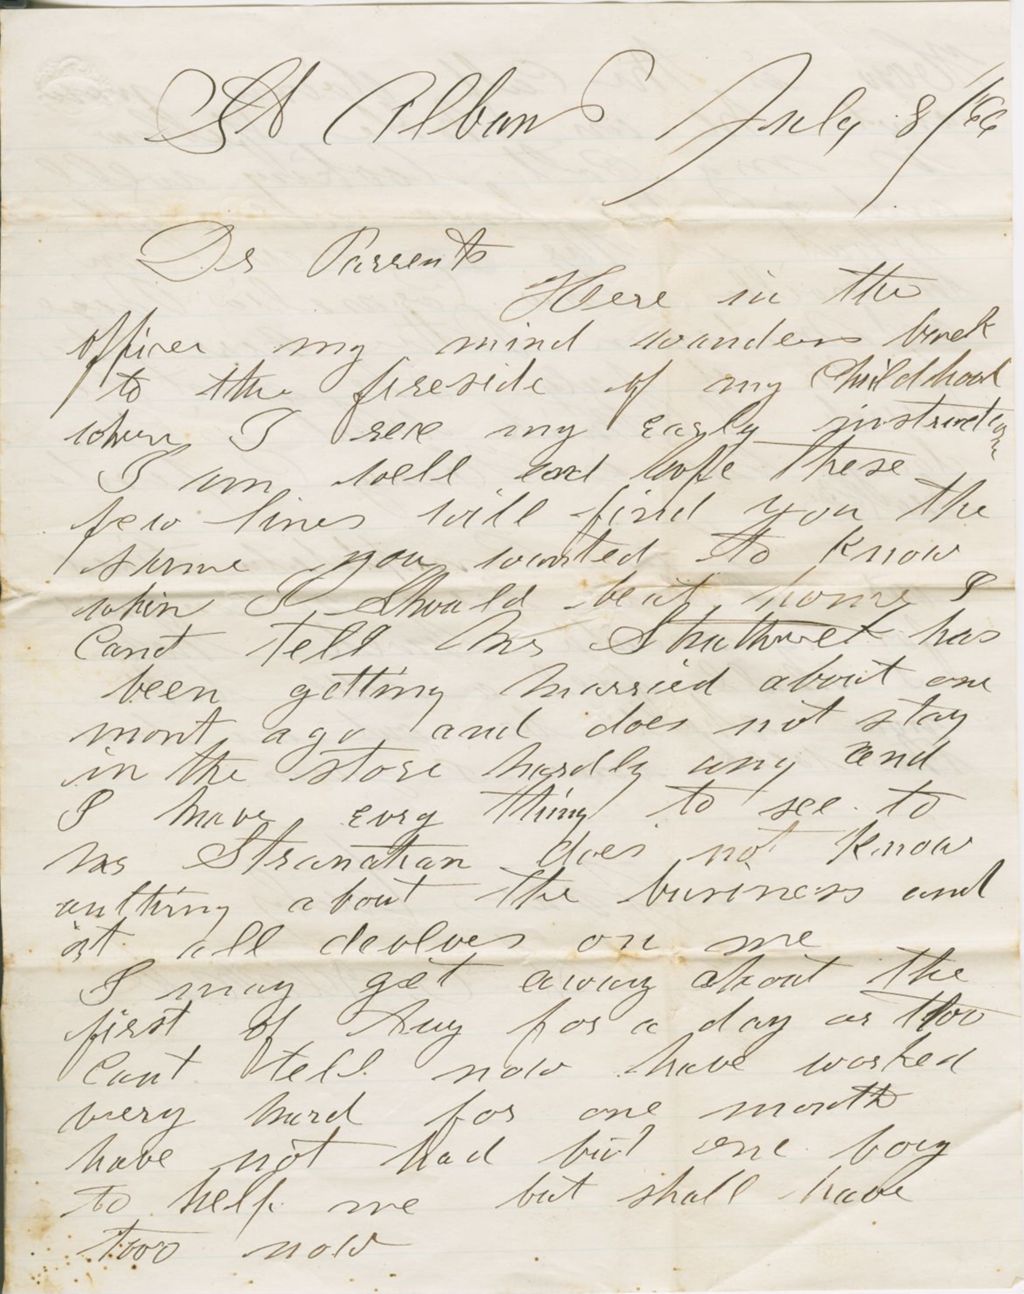 St Albans July 8/66
Dr Parrents
Here in the
office my mind wanders back
to the fireside of my Childhood
where I rec my early instruction
I am well and hope these
few lines will find you the
same you wanted to know
when I should be at home I
Cant tell Mr has
been getting married about one
mont ago and does not stay
in the store hardly any and
I have evry thing to see to
Mr Stranahan does not know
anything about the business and
it all devolves on me
I may get away about the
first of Aug for a day or two
Cant tell now have worked
very hard for one month
have not had but one boy
to help me but shall have
two now